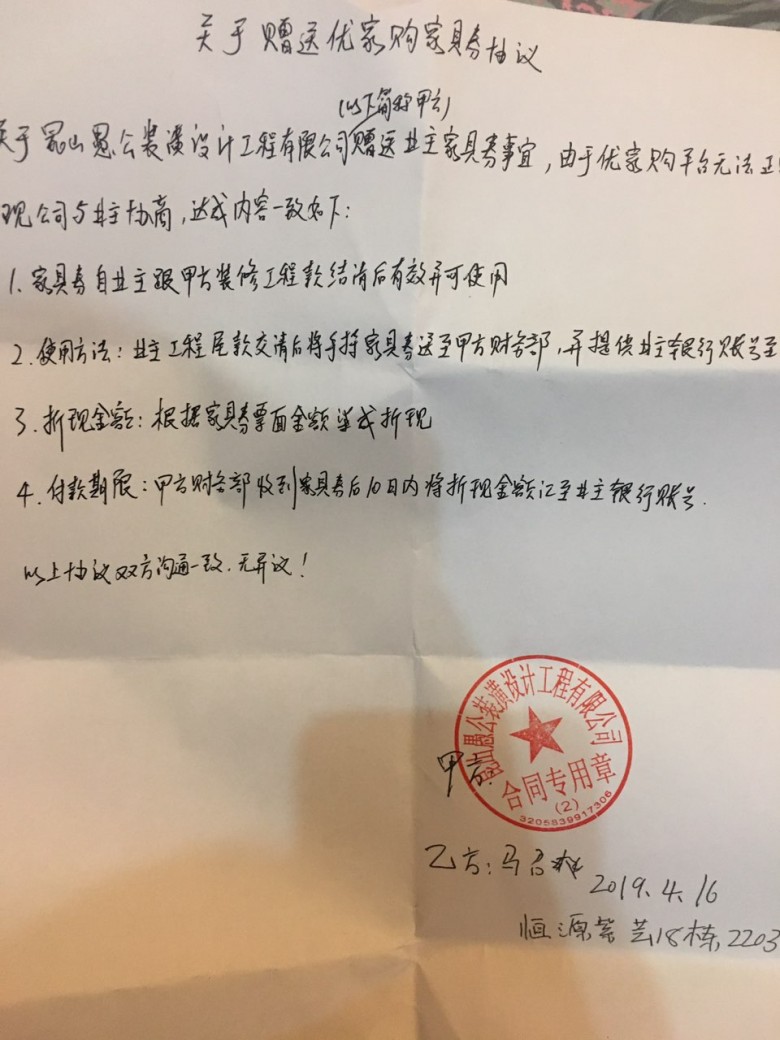 关于赠送优家购家具券协议
(以下简称甲方)
关于昆山愚公装潢设计工程有限公司赠送业主家具券事宜,由于优家购平台无法正
现公司与业主协商,达成内容一致如下:
1.家具券自业主跟甲方装修工程款结清后有效并可使用
2.使用方法:业主工程尾款交清后将手持家具券送至甲方财务部,并提供业主银行账号至
3.折现金额:根据家具券票面金额 折现
4.付款期限:甲方财务部收到家具券后10日内将折现金额汇至业主银行账号.
以上协议双方沟通一致.无异议!
昆山愚公装潢设计工程有限公司
甲方:
合同专用章
(2)
3205839917306
乙方:马
2019.4.16
恒源 18栋,2203